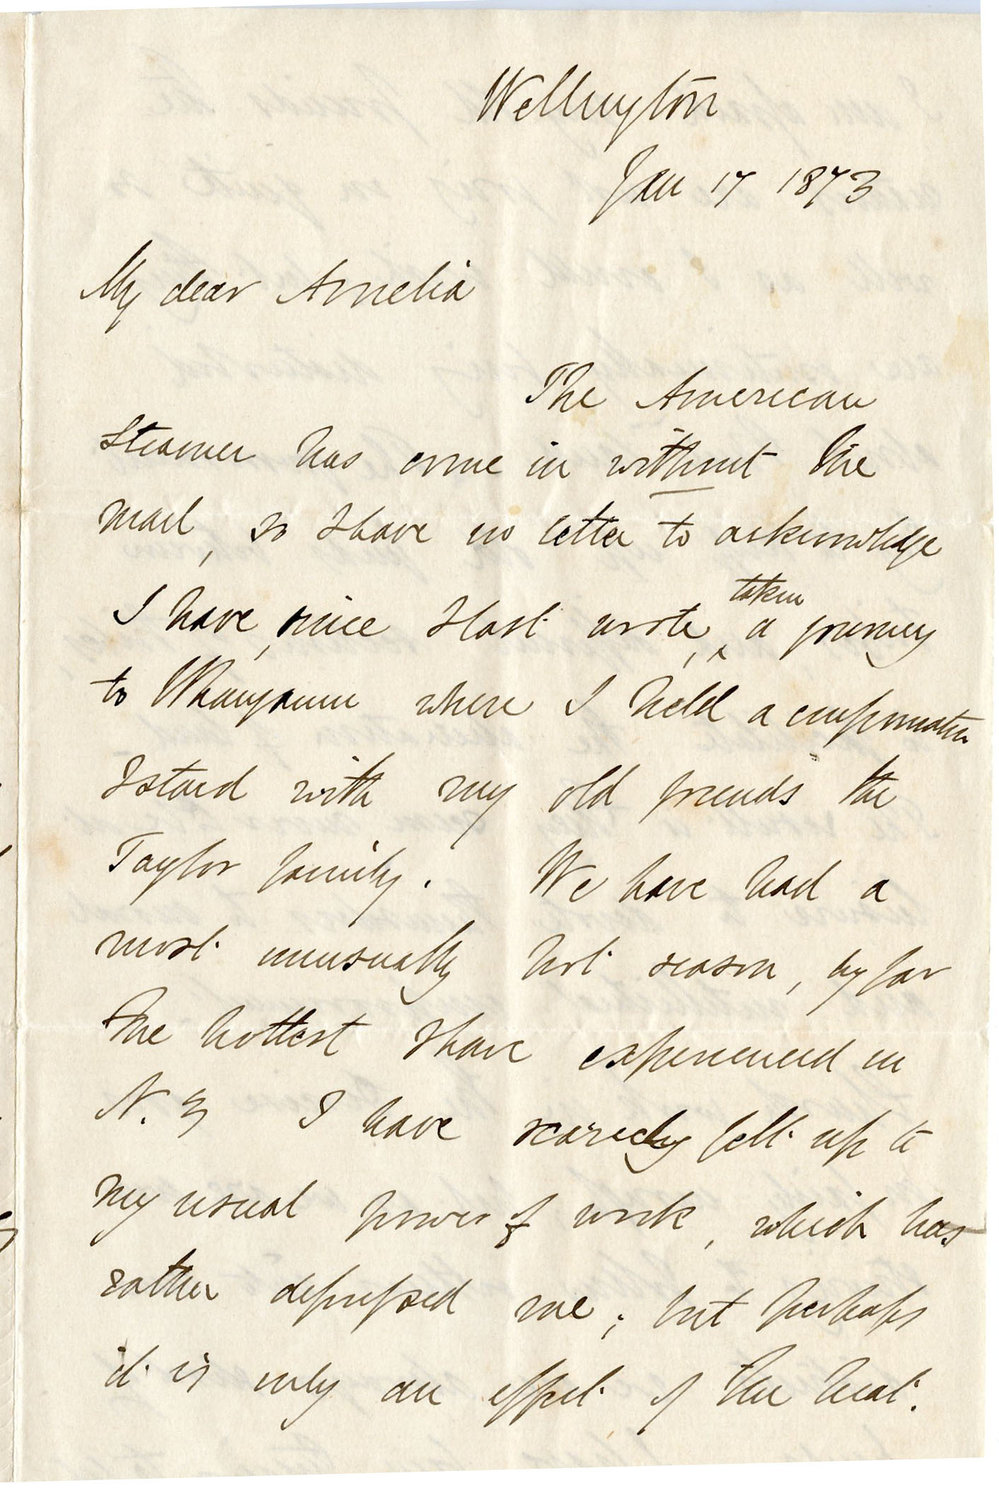 Wellington
Jan 17 1873
My dear Amelia
The American
Steamer has come in without the
mail, so I have no letter to acknowledge
I have, since I last wrote, taken a journey
to Whanganui where I held a confirmation
I staid with my old friends the
Taylor family. We have had a
most unusually hot season, by far
the hottest I have experienced in
N. Z I have scarcely felt up to
my usual power of work, which has
rather depressed me; but perhaps
it is only an effect of the heat.